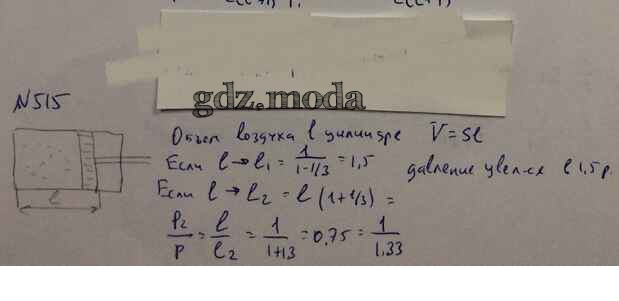 gdz.moda
N515
Объем воздуха в цилиндре V=Sl
Если l → l₁ = 1/(1-1/3) = 1,5 давление увел-ся в 1,5 р.
Если l → l₂ = l (1+1/3) =
p₂/p = l/l₂ = 1/(1+13) = 0,75 = 1/1,33
l